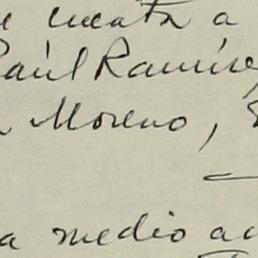 cuenta a
Raúl Ramíre
Moreno,
a medio a